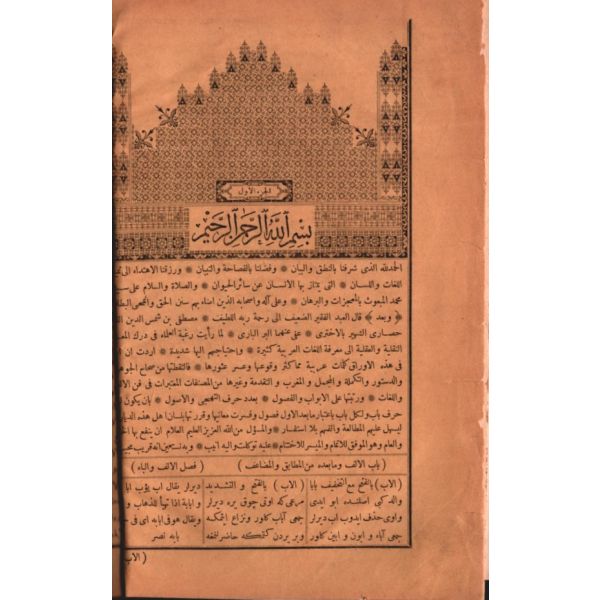 الجزء الاول
بسم الله الرحمن الرحيم
الحمدلله الذى شرفنا بالنطق والبيان * وفضلنا بالفصاحة والتبيان * ورزقنا الاهتداء الى
اللغات واللسان * التى يمتاز بها الانسان عن سائر الحيوان * والصلاة والسلام على
محمد المبعوث بالمعجزات والبرهان * وعلى آله واصحابه الذين امناء بهم سنن الحق
﴿ وبعد ﴾ قال العبد الفقير الضعيف الى رحمة ربه اللطيف * مصطفى بن شمس الدين
حصارى الشهير بالاخترى * عفى عنهما البر البارى * لما رأيت رغبة العلماء فى درك
النقلية والعقلية الى معرفة اللغات العربية كثيرة * واحتياجهم اليها شديدة * اردت ان
فى هذه الاوراق كلمات عربية مما كثر وقوعها وعسر عثورها * فالتقطتها من صحاح
والدستور والتكملة والمجمل والمغرب والتقدمة وغيرها من المصنفات المعتبرات فى فن
واللغات * ورتبتها على الابواب والفصول * بعدد حرف التهجى والاصول * بان يكون
حرف باب ولكل باب باعتبار ما بعد الاول فصول وفسرت معانيها وقررتها بلسان اهل هذه
ليسهل عليهم المطالعة والفهم بلا استفسار * والمسؤل من الله العزيز العليم العلام ان ينفع بها
والعام وهو الموفق للاتمام والميسر للاختتام * عليه توكلت واليه انيب * وبه نستعين انه قريب
( باب الالف وما بعده من المطابق والمضاعف ) ( فصل الالف والباء )
( الاب ) بالفتح مع التخفيف بابا
والد كبى اصلنده ابو ايدى
واوى حذف ايدوب اب ديرلر
جمعى آباء و ابون و ابين كلور
( الاب ) بالفتح و التشديد
مرعى كه اوتى چوق يره ديرلر
جمعى آباب كلور و نزاع ايتمكه
و بر يردن كتمكه حاضرلنمغه
ديرلر يقال اب يؤب
و ابابة اذا تهيأ للذهاب
ويقال هو فى ابابه اى فى
يابه نصر
( الاب